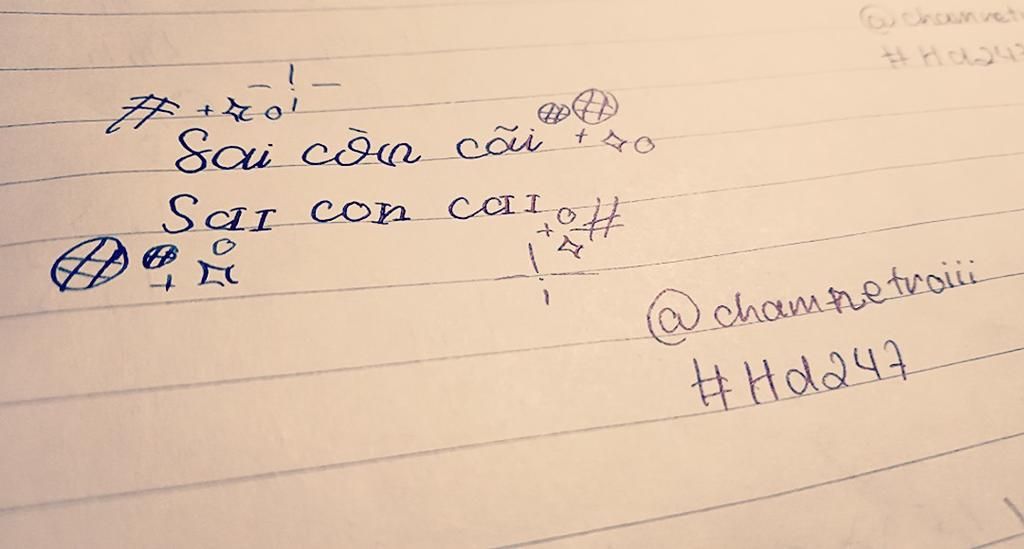 @chamnet
#Hd247
Sai còn cãi
Sai con cai
@chamnetroiii
#Hd247